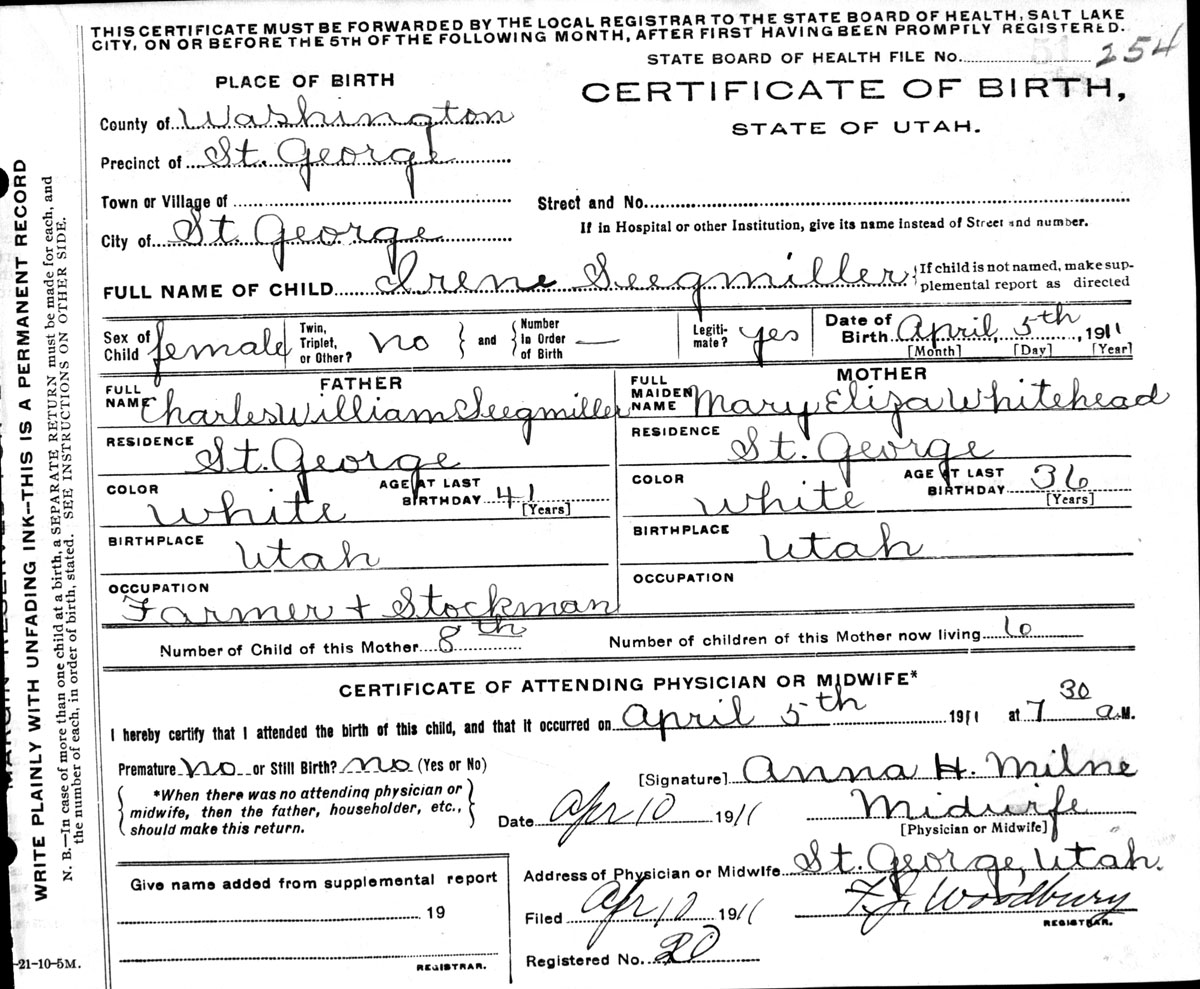 THIS CERTIFICATE MUST BE FORWARDED BY THE LOCAL REGISTRAR TO THE STATE BOARD OF HEALTH, SALT LAKE
CITY, ON OR BEFORE THE 5TH OF THE FOLLOWING MONTH, AFTER FIRST HAVING BEEN PROMPTLY REGISTERED.
STATE BOARD OF HEALTH FILE No. 254
PLACE OF BIRTH
CERTIFICATE OF BIRTH,
STATE OF UTAH.
County of Washington
Precinct of St. George
Town or Village of
Street and No.
City of St. George
If in Hospital or other Institution, give its name instead of Street and number.
FULL NAME OF CHILD Irene Seegmiller {If child is not named, make sup-
plemental report as directed
Sex of Child female
Twin, Triplet, or Other? no } and { Number In Order of Birth —
Legiti-mate? yes
Date of Birth April 5th, 1911
[Month] [Day] [Year]
FATHER
FULL NAME Charles William Seegmiller
RESIDENCE St. George
COLOR White AGE AT LAST BIRTHDAY 41 [Years]
BIRTHPLACE Utah
OCCUPATION Farmer + Stockman
MOTHER
FULL MAIDEN NAME Mary Eliza Whitehead
RESIDENCE St. George
COLOR White AGE AT LAST BIRTHDAY 36 [Years]
BIRTHPLACE Utah
OCCUPATION
Number of Child of this Mother 8th Number of children of this Mother now living 6
CERTIFICATE OF ATTENDING PHYSICIAN OR MIDWIFE*
I hereby certify that I attended the birth of this child, and that it occurred on April 5th 1911 at 7 30 a.M.
Premature no or Still Birth? no (Yes or No)
{ *When there was no attending physician or
midwife, then the father, householder, etc.,
should make this return. }
[Signature] Anna H. Milne
Date Apr 10 1911 Midwife
[Physician or Midwife]
Address of Physician or Midwife St. George, Utah.
Give name added from supplemental report
19
REGISTRAR.
Filed Apr 10 1911 F. J. Woodbury
REGISTRAR.
Registered No. 20
WRITE PLAINLY WITH UNFADING INK—THIS IS A PERMANENT RECORD
N. B.—In case of more than one child at a birth, a SEPARATE RETURN must be made for each, and
the number of each, in order of birth, stated. SEE INSTRUCTIONS ON OTHER SIDE.
-21-10-5M.